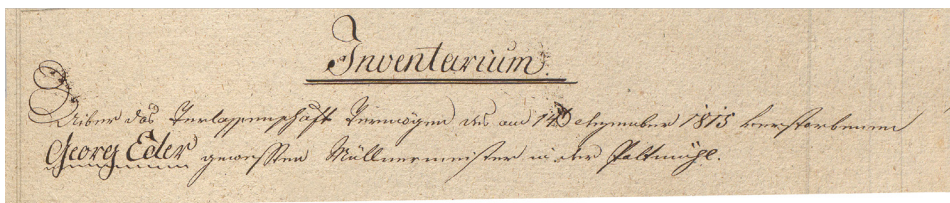 Inventarium.
Uiber das Verlassenschaft Vermögen des am 14 Dezember 1815 verstorbenen
Georg Eder gewesten Müllnermeister in der Paltmühl.